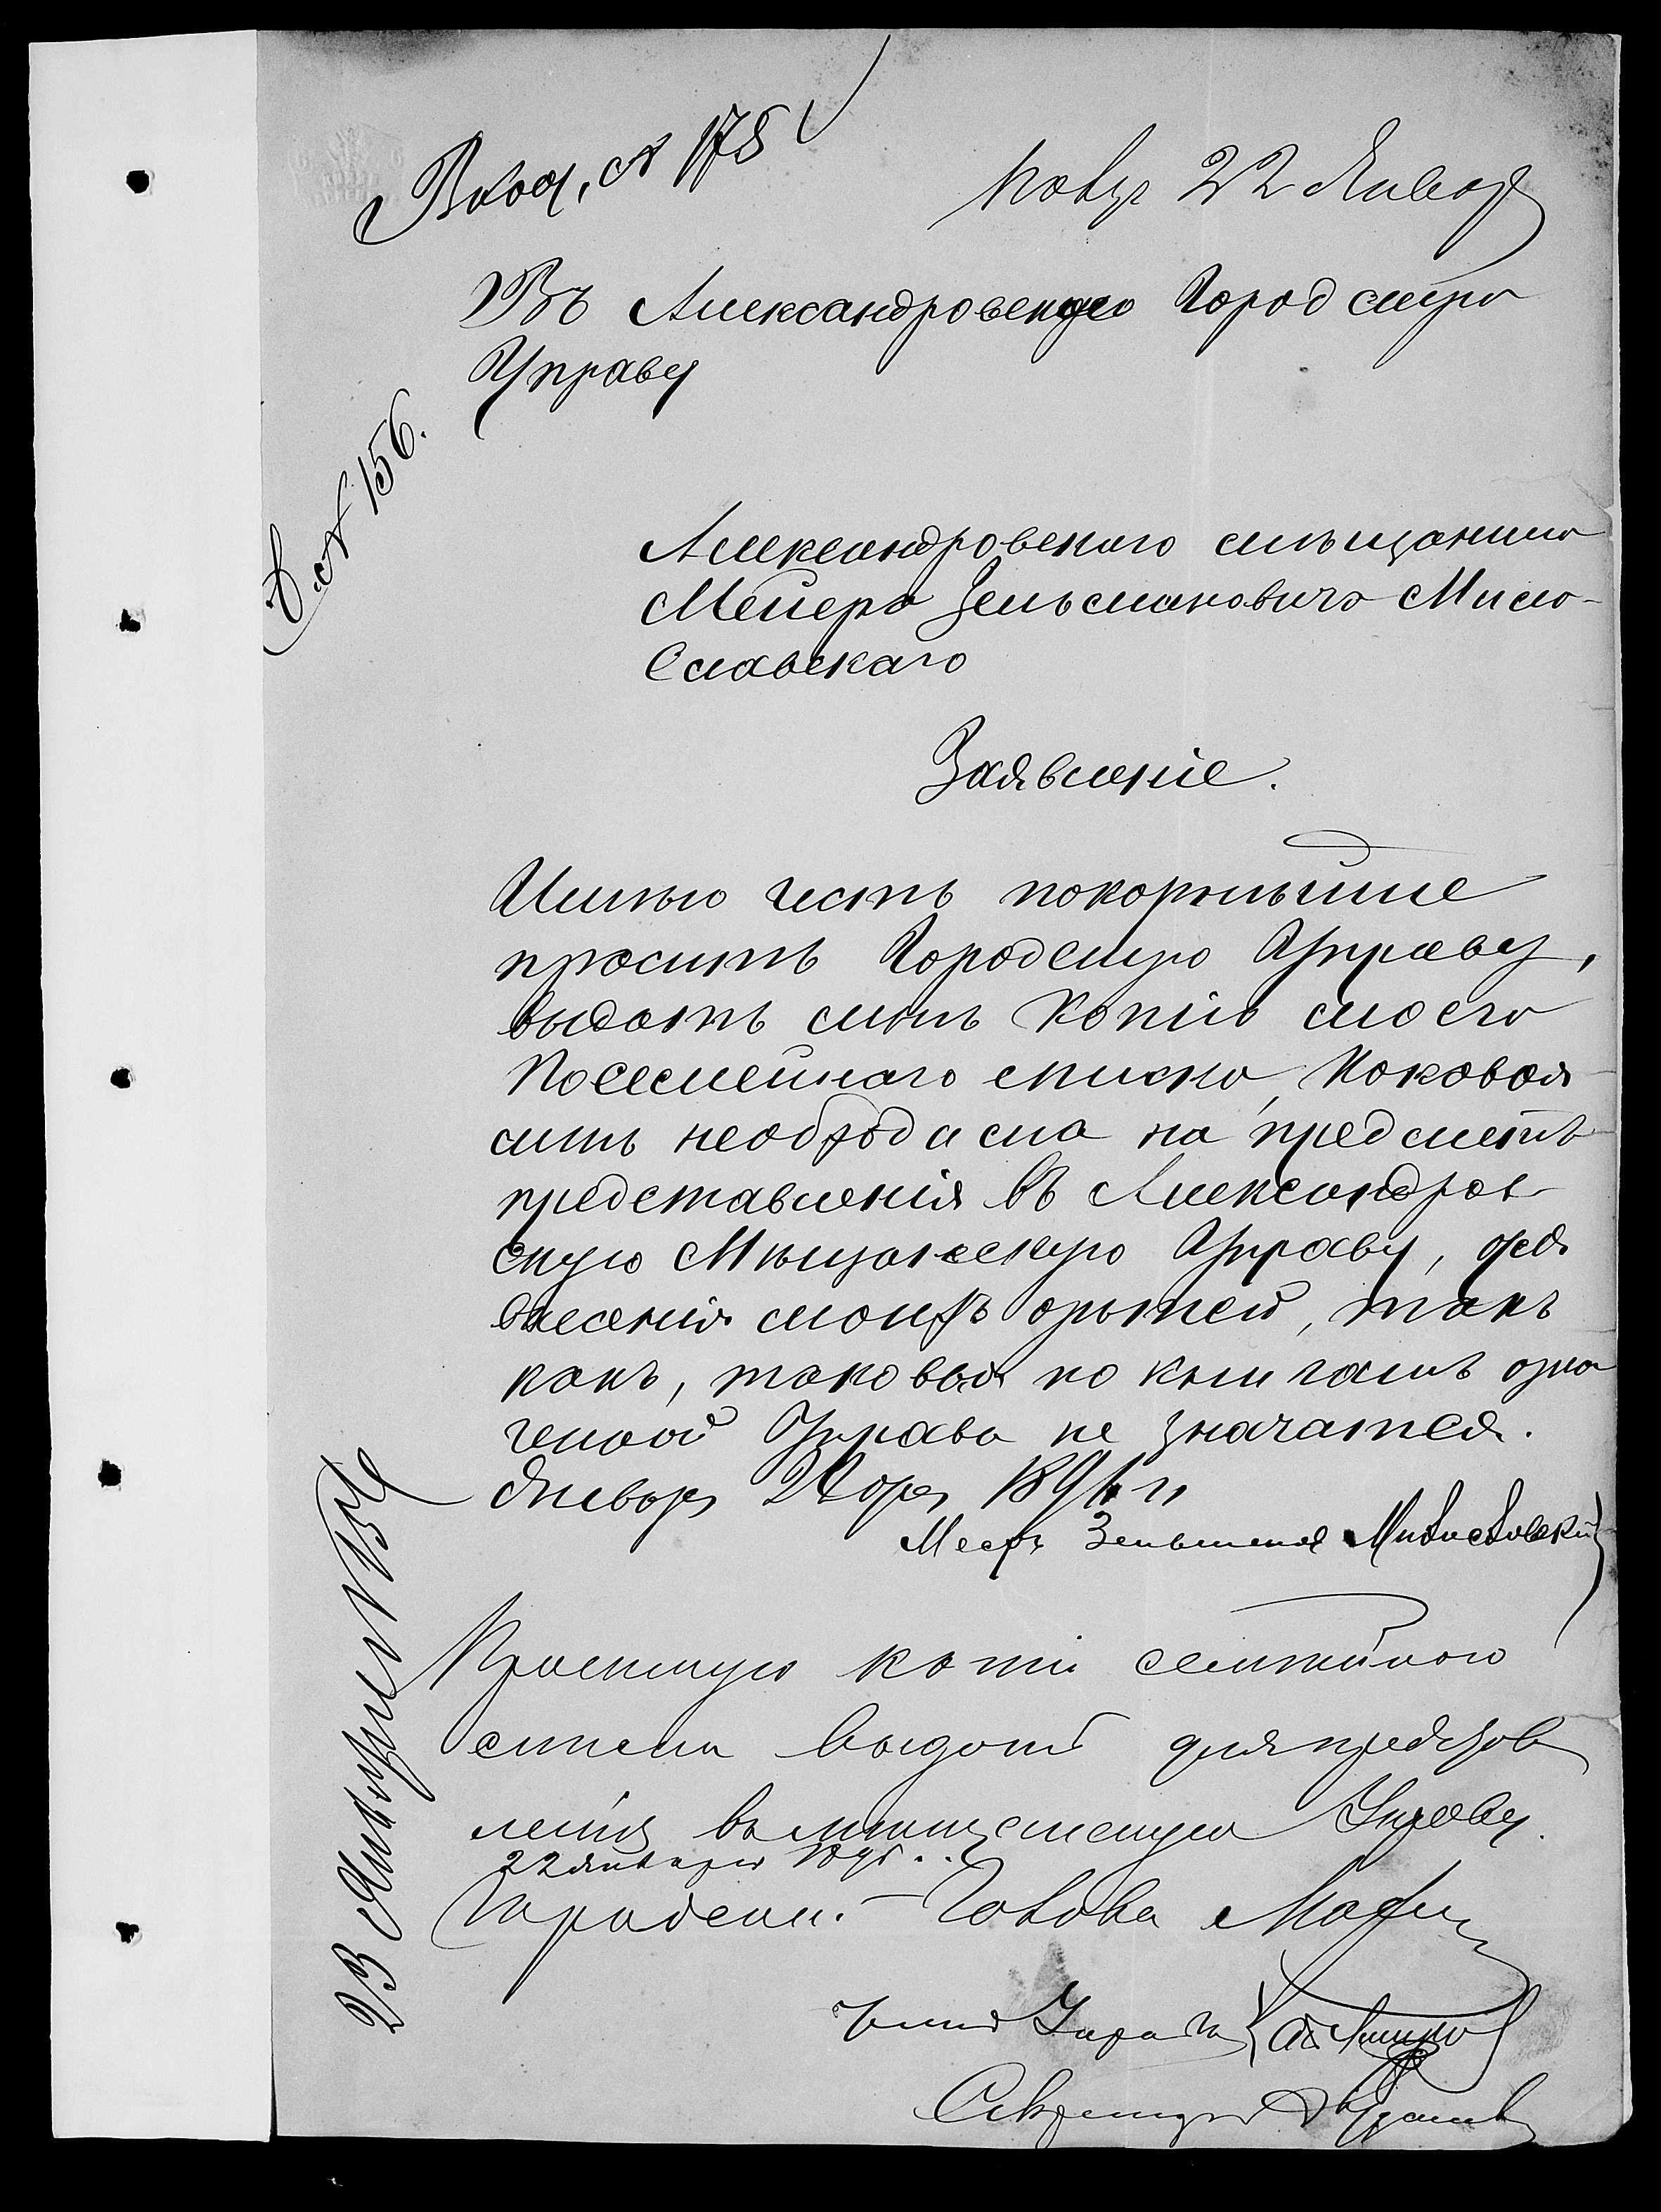 Вход. № 178
Получ 22 Января
Въ Александровскую Городскую
Управу
Д. № 156.
Александровскаго мѣщанина
Мейера Зельмановича Мило-
славскаго
Заявленіе.
Имѣю честь покорнѣйше
просить Городскую Управу,
выдать мнѣ копію моего
посемейнаго списка, каковая
мнѣ необходима на предметъ
представленія въ Александров-
скую Мѣщанскую Управу, для
внесенія моихъ дѣтей, такъ
какъ, таковыя по книгамъ озна
ченной Управы не значатся.
Января 22 дня 1896 г
Меер Зельманов Милославский
Просимую копію семейнаго
списка выдать для представ
ленія въ мѣщанскую Управу.
22 января 189
Городской Голова
Члены Управы
Секретарь
23 Января № 154